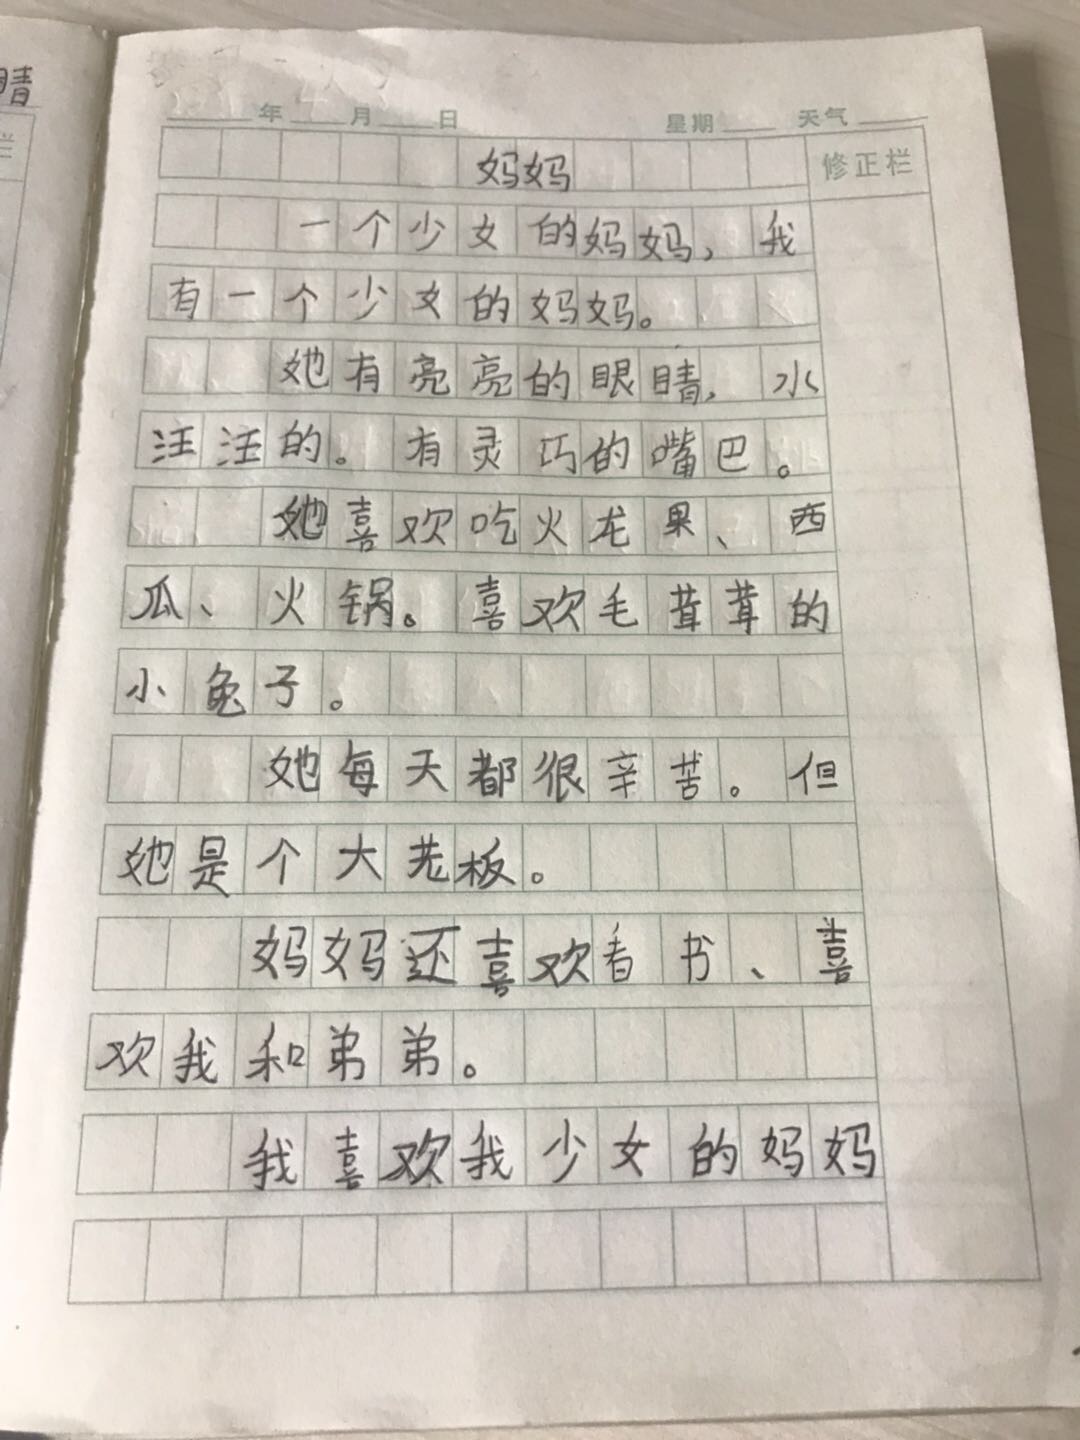 晴
年 月 日 星期 天气
妈妈
修正栏
栏
一个少女的妈妈，我
有一个少女的妈妈。
她有亮亮的眼睛，水
汪汪的。有灵巧的嘴巴。
她喜欢吃火龙果、西
瓜、火锅。喜欢毛茸茸的
小兔子。
她每天都很辛苦。但
她是个大老板。
妈妈还喜欢看书、喜
欢我和弟弟。
我喜欢我少女的妈妈